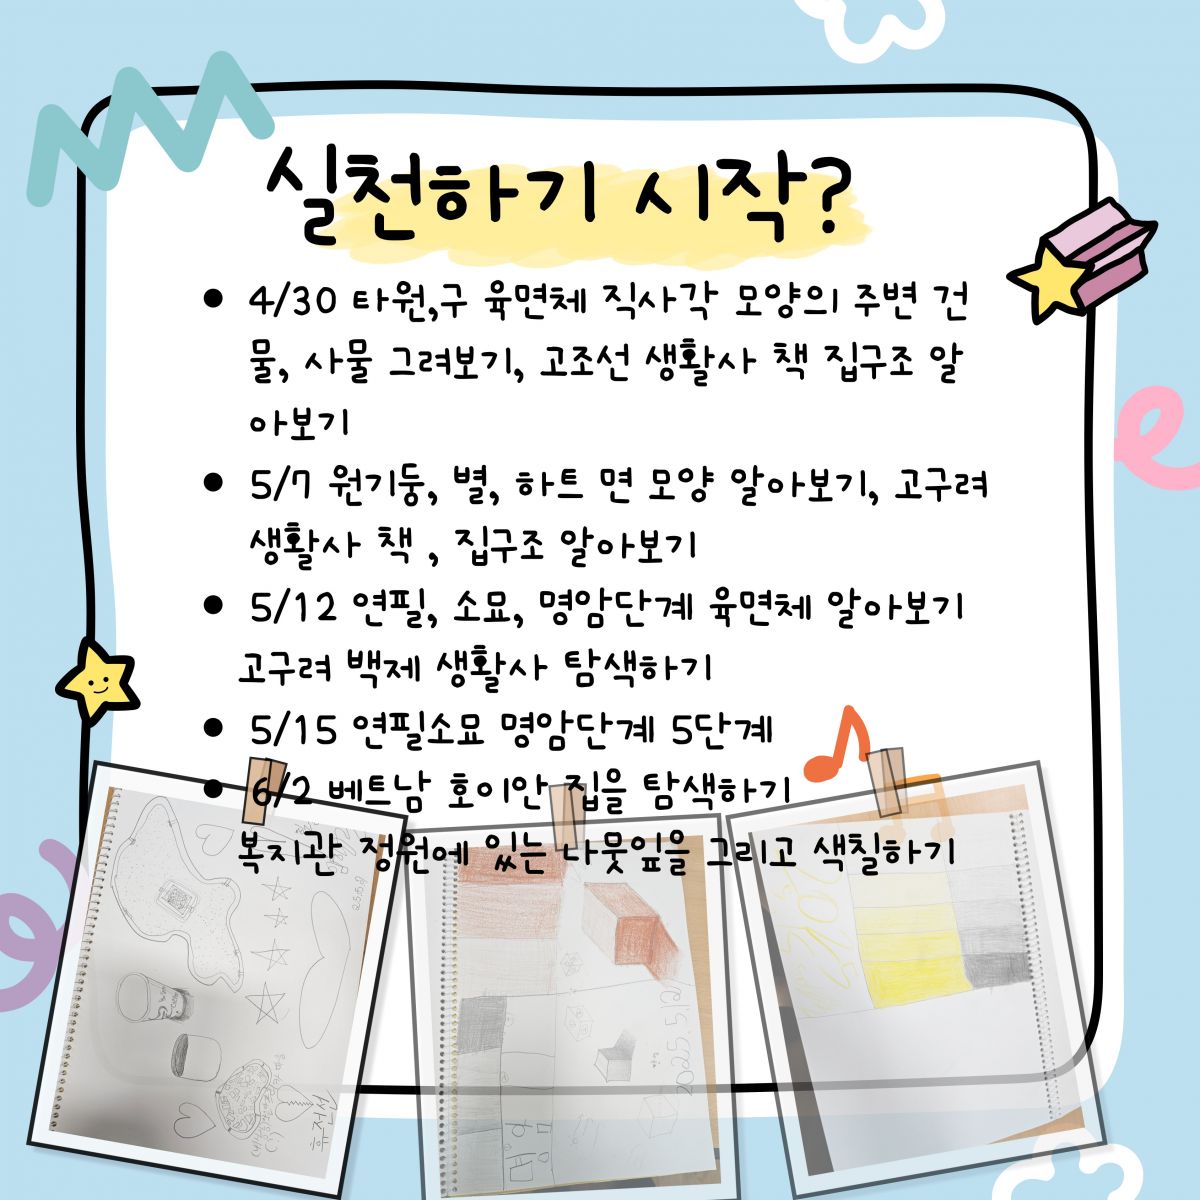 실천하기 시작?
• 4/30 타원,구 육면체 직사각 모양의 주변 건
물, 사물 그려보기, 고조선 생활사 책 집구조 알
아보기
• 5/7 원기둥, 별, 하트 면 모양 알아보기, 고구려
생활사 책 , 집구조 알아보기
• 5/12 연필, 소묘, 명암단계 육면체 알아보기
고구려 백제 생활사 탐색하기
• 5/15 연필소묘 명암단계 5단계
• 6/2 베트남 호이안 집을 탐색하기
복지관 정원에 있는 나뭇잎을 그리고 색칠하기
2025.5.12